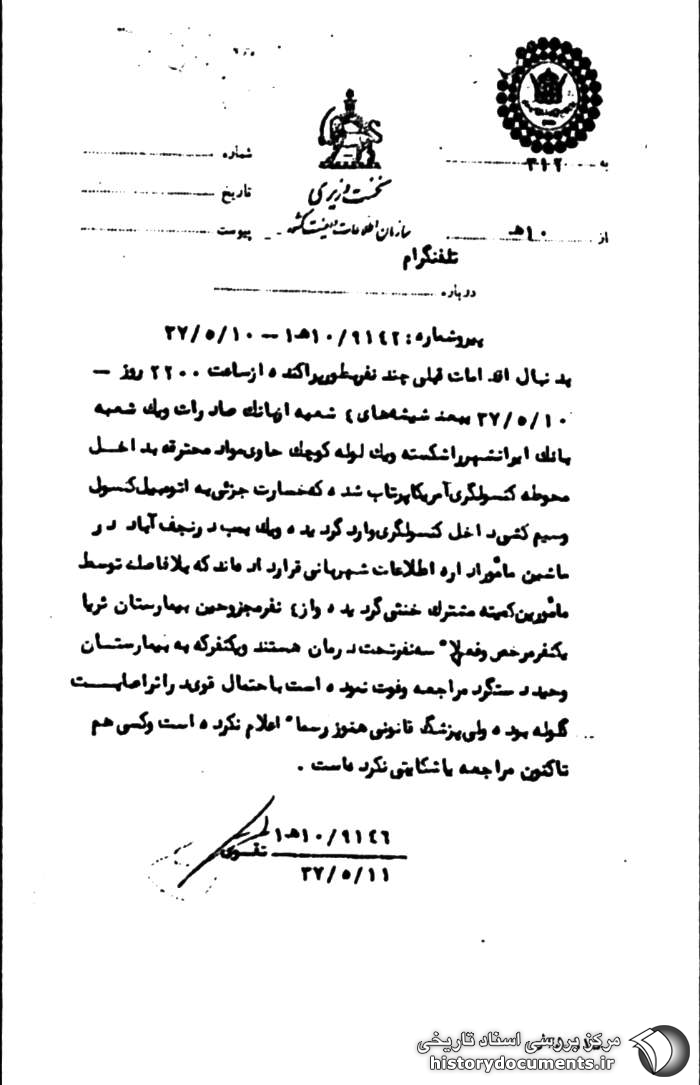 به ۳۱۲
شماره
نخست وزیری
تاریخ
سازمان اطلاعات و امنیت کشور
از ۱۰ هـ
پیوست
تلفنگرام
درباره
پیروشماره: ۱۰/۹۱۴۲هـ۱ – ۳۷/۵/۱۰
بدنبال اقدامات قبلی چند نفربطورپراکنده ازساعت ۲۲۰۰ روز –
۳۷/۵/۱۰ ببعد شیشه‌های ٤ شعبه ازبانك صادرات ویك شعبه
بانك ایرانشهرراشکسته ویك لوله کوچك حاوی‌مواد محترقه بداخل
محوطه کنسولگری‌آمریکاپرتاب شده که‌خسارت جزئی‌به اتومبیل‌کنسول
وسیم کشی‌داخل کنسولگری‌وارد گردیده ویك بمب درنجف‌آباد در
ماشین مأموراداره اطلاعات شهربانی قراردادهاند که بلافاصله توسط
مأمورین‌کمیته مشترك خنثی‌گردیده واز٤ نفرمجروحین بیمارستان ثریا
یکنفرمرخص وفعلاً سه‌نفرتحت درمان هستند ویکنفرکه به بیمارستان
وحید دستگرد مراجعه وفوت نموده است باحتمال قوی‌دراثراصابت
گلوله بوده ولی‌پزشگ قانونی هنوز رسماً اعلام نکرده است وکسی هم
تاکنون مراجعه یاشکایتی نکرده‌است .
۱۰/۹۱٤٦هـ۱
تقوی
۳۷/۵/۱۱
مرکز بررسی اسناد تاریخی
historydocuments.ir